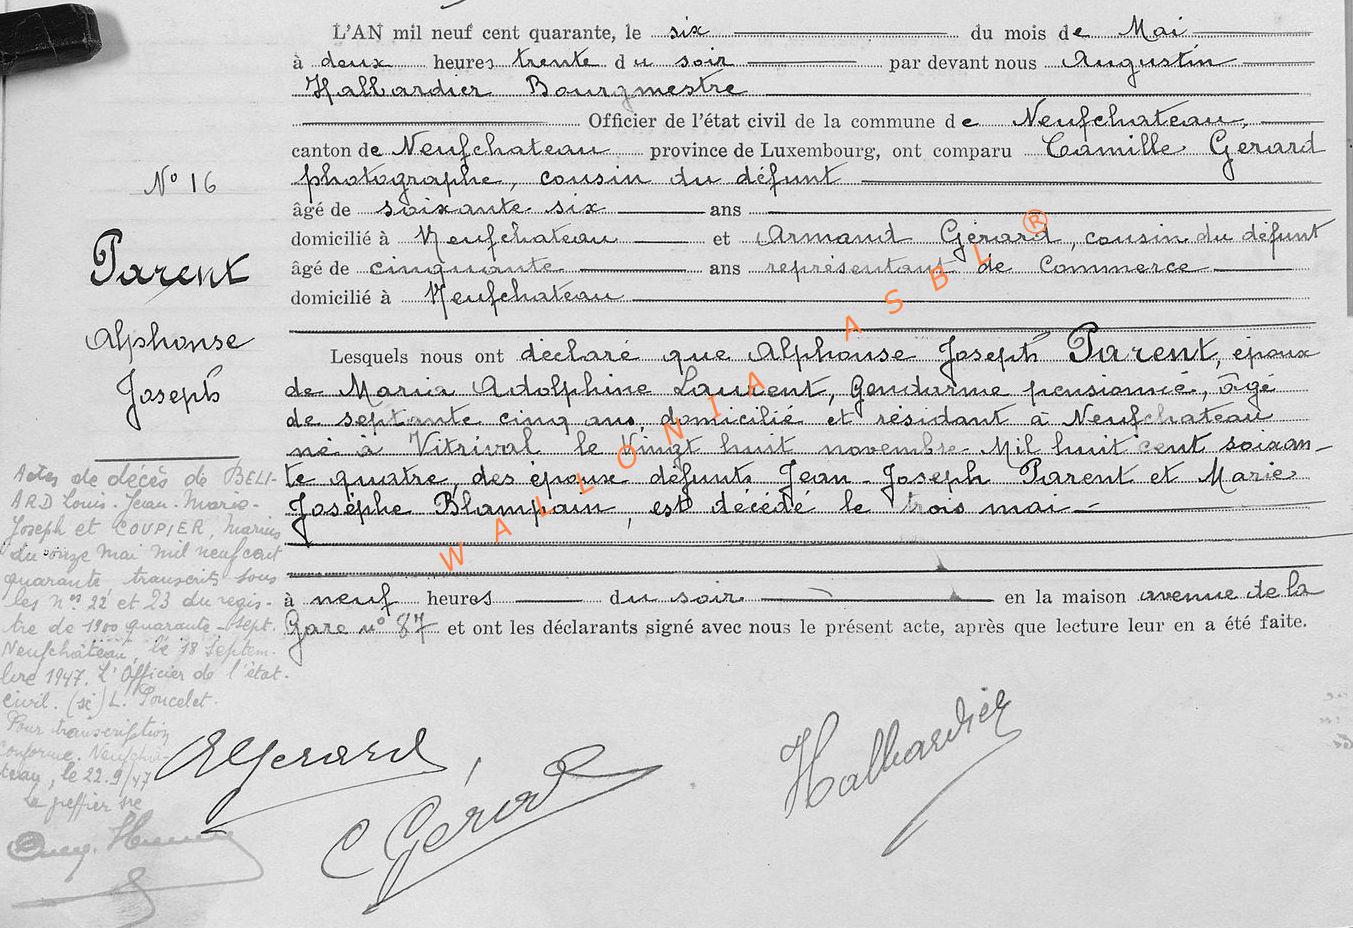 L'AN mil neuf cent quarante, le six du mois de Mai
à deux heures trente du soir par devant nous Augustin
Halbardier Bourgmestre
Officier de l'état civil de la commune de Neufchateau,
canton de Neufchateau province de Luxembourg, ont comparu Camille Gerard
photographe, cousin du défunt
âgé de soixante six ans
domicilié à Neufchateau et Armand Gérard, cousin du défunt
âgé de cinquante ans représentant de Commerce
domicilié à Neufchateau
Lesquels nous ont déclaré que Alphonse Joseph Parent, époux
de Maria Adolphine Laurent, Gendarme pensionné, âgé
de septante cinq ans, domicilié et résidant à Neufchateau
né à Vitrival le Vingt huit novembre Mil huit cent soixan-
te quatre, des époux défunts Jean-Joseph Parent et Marie
Josèphe Blampain, est décédé le trois mai
à neuf heures du soir en la maison avenue de la
Gare n° 87 et ont les déclarants signé avec nous le présent acte, après que lecture leur en a été faite.
N° 16
Parent
Alphonse
Joseph
Actes de décès de BELI-
ARD Louis-Jean-Marie-
Joseph et COUPIER, Marius
du onze mai mil neuf cent
quarante transcrits sous
les nos 22 et 23 du regis-
tre de 1900 quarante-sept.
Neufchâteau, le 18 Septem-
bre 1947. L'Officier de l'état-
civil. (sé) L. Poncelet.
Pour transcription
conforme. Neufchâ-
teau, le 22.9/47
Le greffier
AGerard
C Gérard
Halbardier
WALLONIA ASBL ®